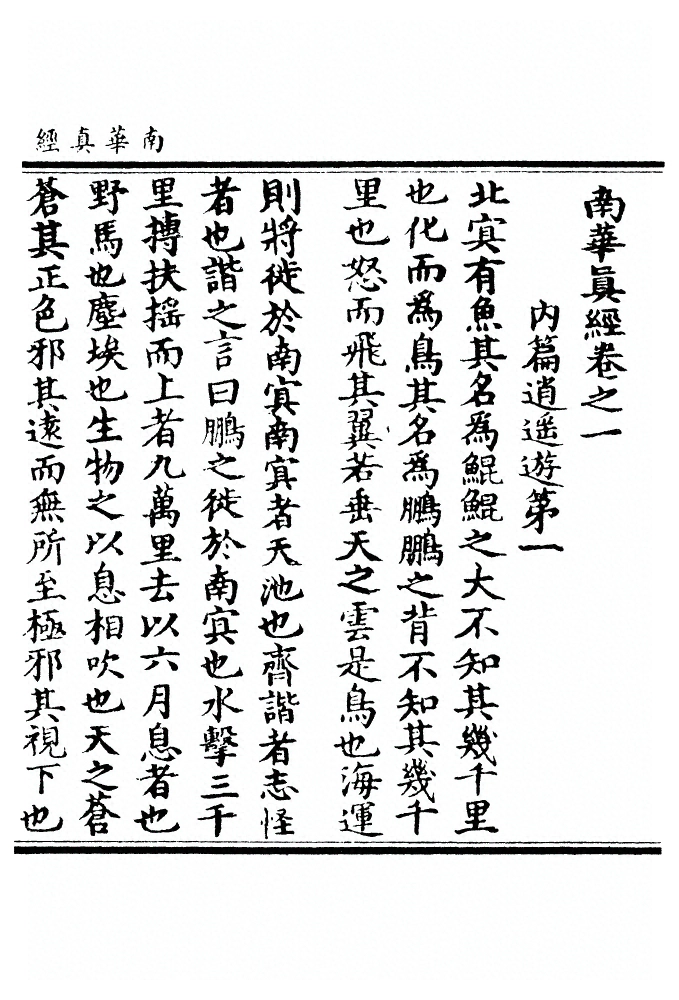 南華真經
南華眞經卷之一
内篇逍遥遊第一
北㝠有魚其名爲鯤鯤之大不知其幾千里
也化而爲鳥其名爲鵬鵬之背不知其幾千
里也怒而飛其翼若垂天之雲是鳥也海運
則將徙於南㝠南㝠者天池也齊諧者志怪
者也諧之言曰鵬之徙於南㝠也水擊三千
里摶扶摇而上者九萬里去以六月息者也
野馬也塵埃也生物之以息相吹也天之蒼
蒼其正色邪其遠而無所至極邪其視下也